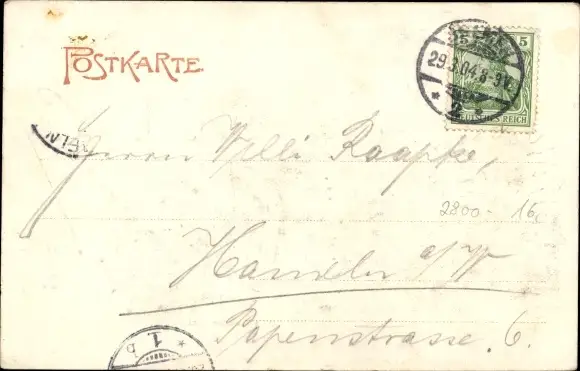 POSTKARTE.
5
29.3.04.8-9V.
DEUTSCHES REICH
2
ELN
Herrn Willi Raapke,
2800 - 16,
Hameln a/W
Papenstrasse 6.
1.b